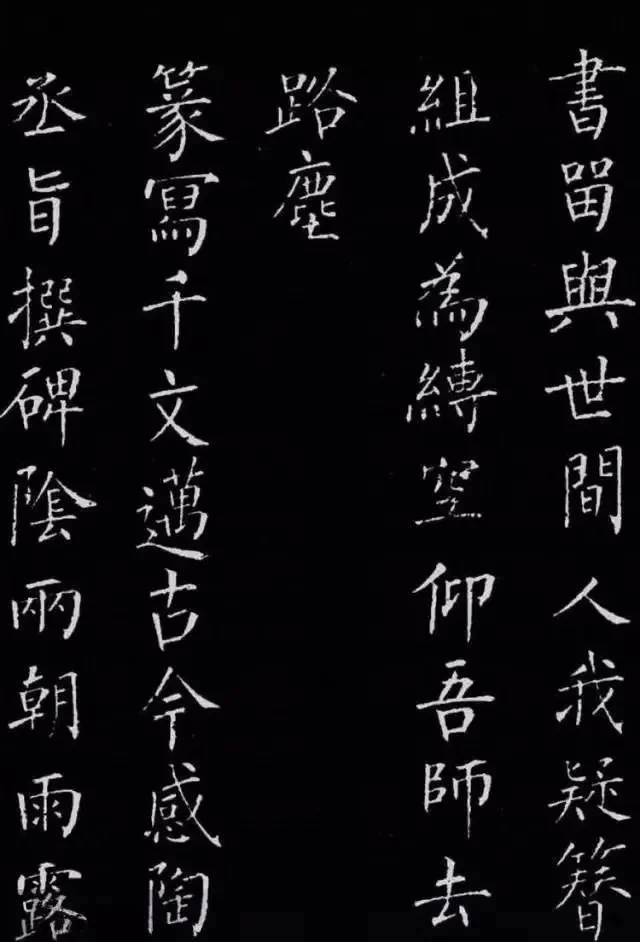 書畱與世間人我疑簪
組成為縛空仰吾師去
路塵
篆寫千文邁古今感陶
丞旨撰碑陰兩朝雨露